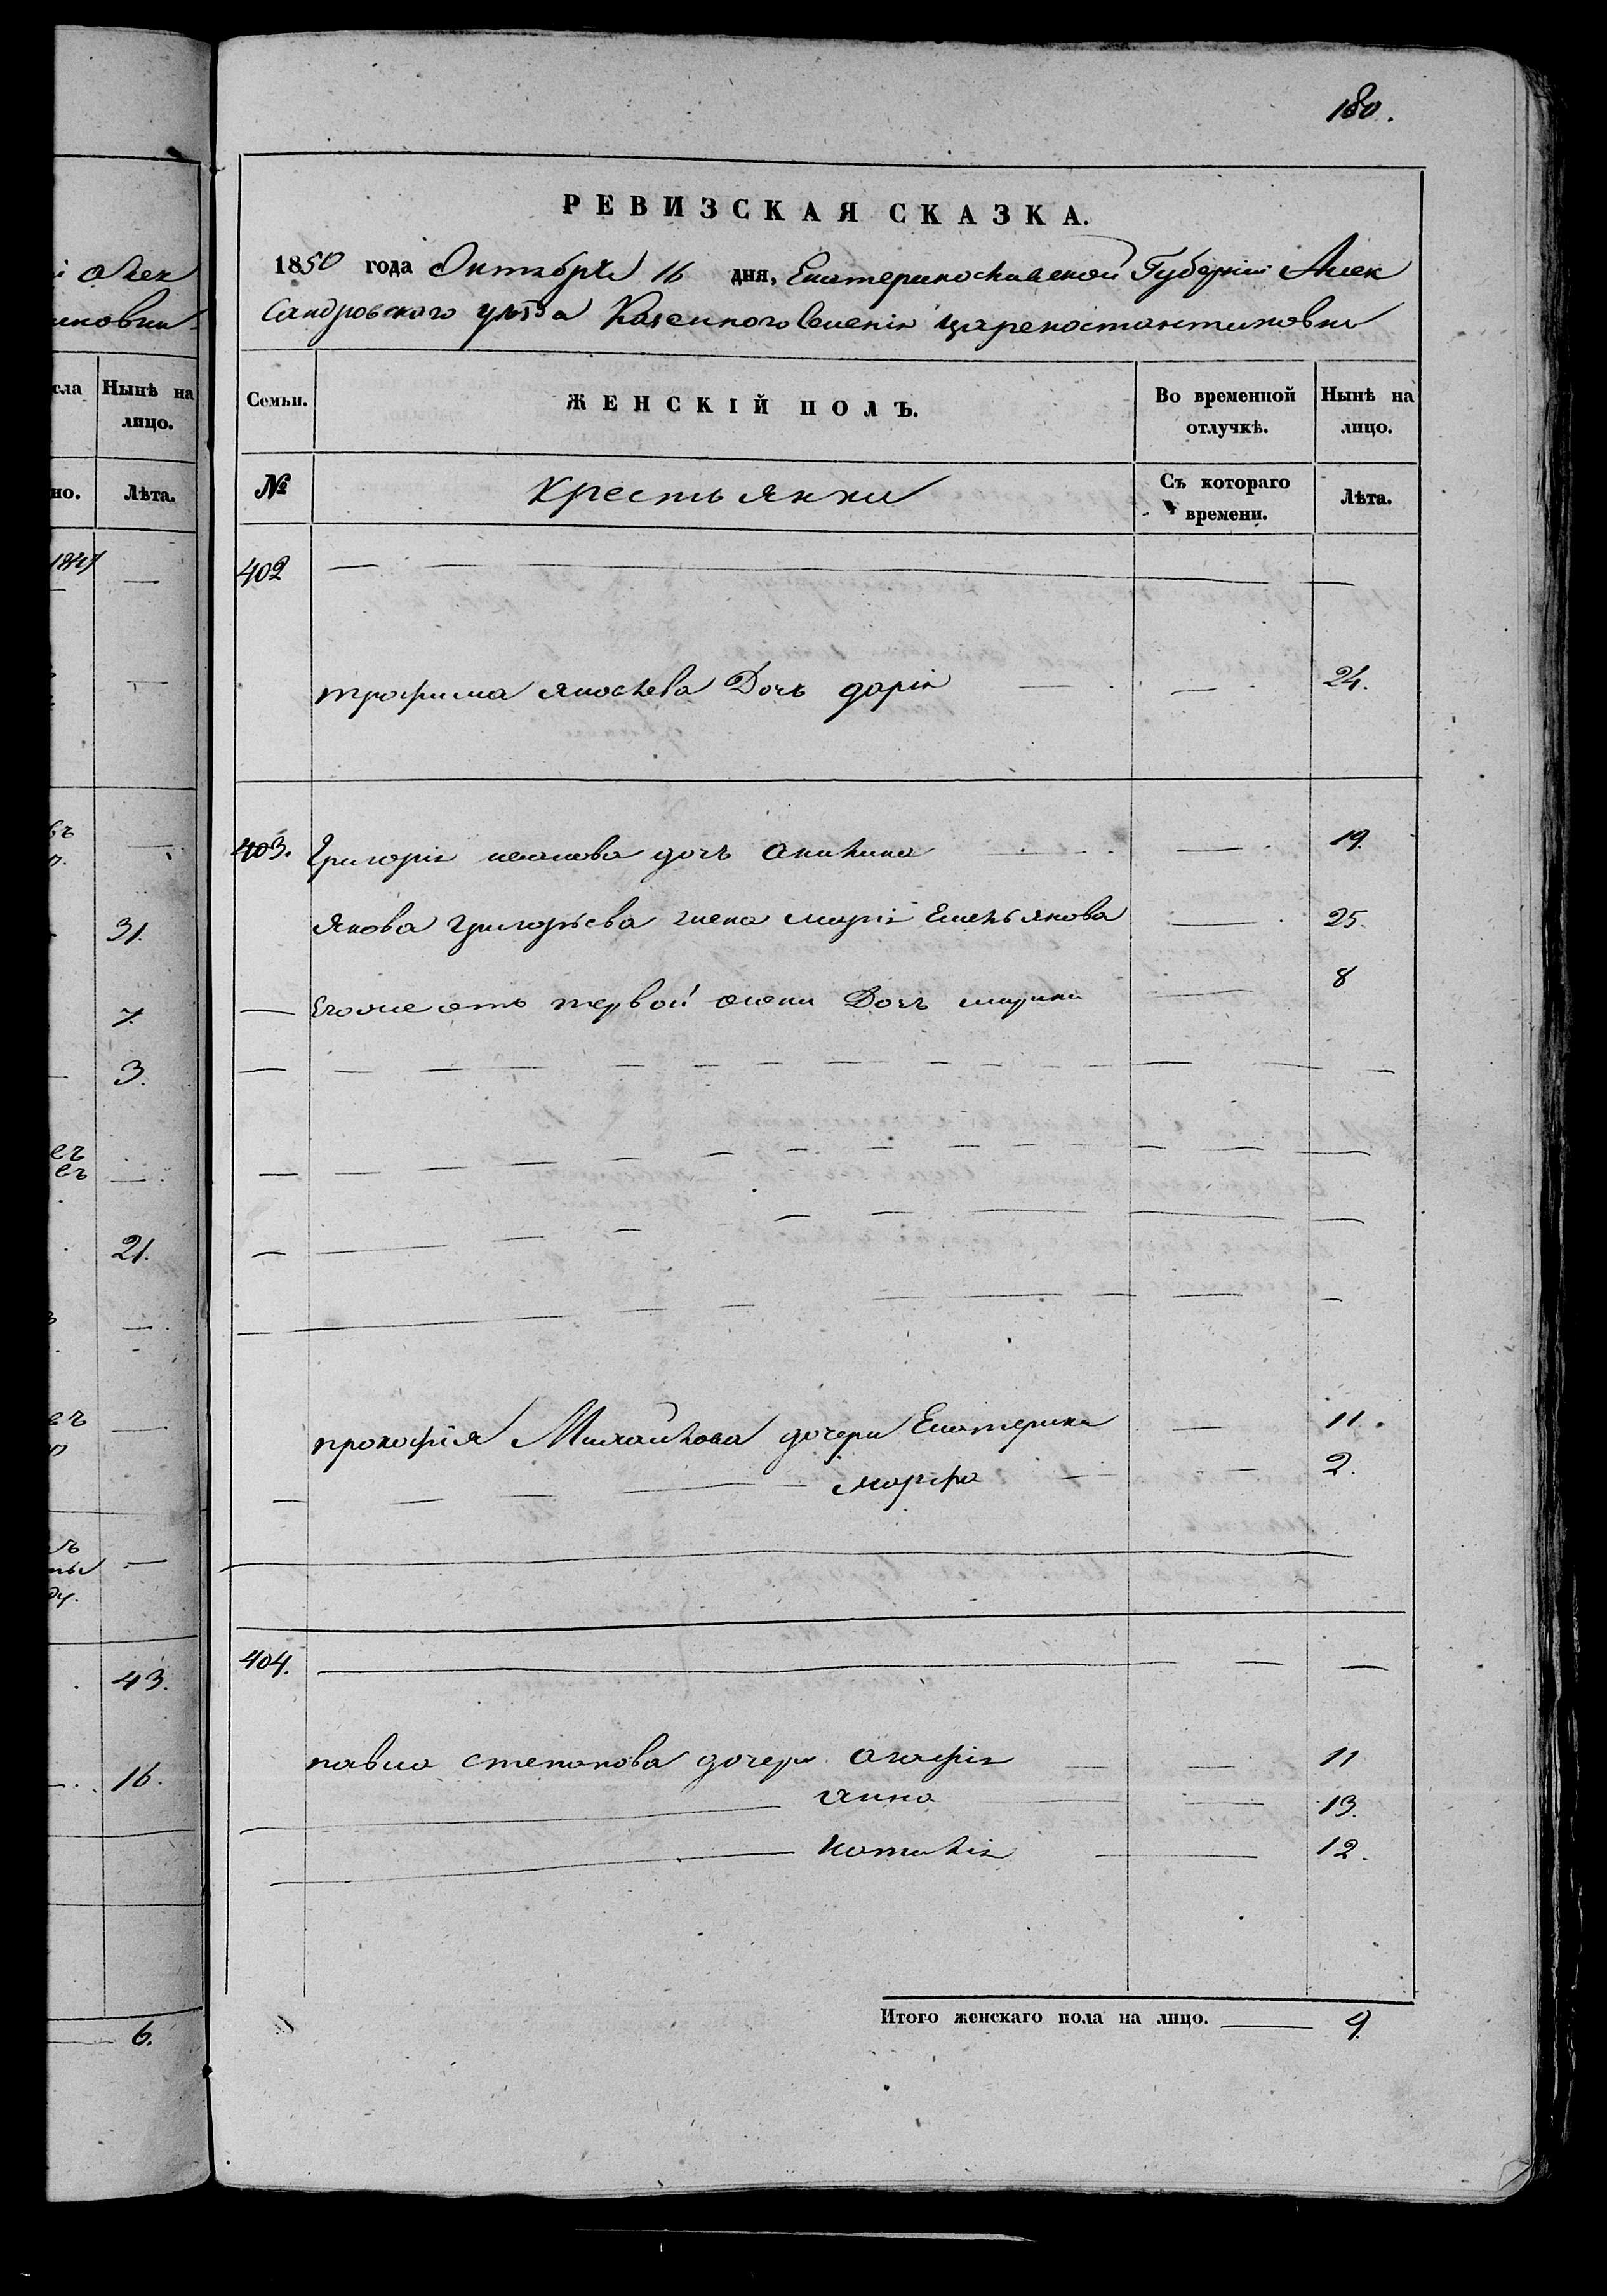 і Алек
иновки
180.
РЕВИЗСКАЯ СКАЗКА.
1850 года Октября 16 дня, Екатеринославской Губерніи Алек
сандровского уѣзда Казенного Селенія Цареконстантиновки
сла
Нынѣ на лицо.
но.
Лѣта.
Семьи.
ЖЕНСКІЙ ПОЛЪ.
Во временной отлучкѣ.
Нынѣ на лицо.
№
Крестьянки
Съ котораго времени.
Лѣта.
402
трофима яковлева Дочь дарія 24.
403. Григорія иванова дочь Акилина 19.
Якова григорьева жена марія Емельянова 25.
Егоже отъ первой жены Дочь марина 8
прокофія Михайлова дочери Екатерина 11.
марфа 2.
404.
павла степанова дочери агафія 11
анна 13.
наталія 12.
Итого женскаго пола на лицо. 9.
1847
31.
7.
3.
21.
43.
16.
6.